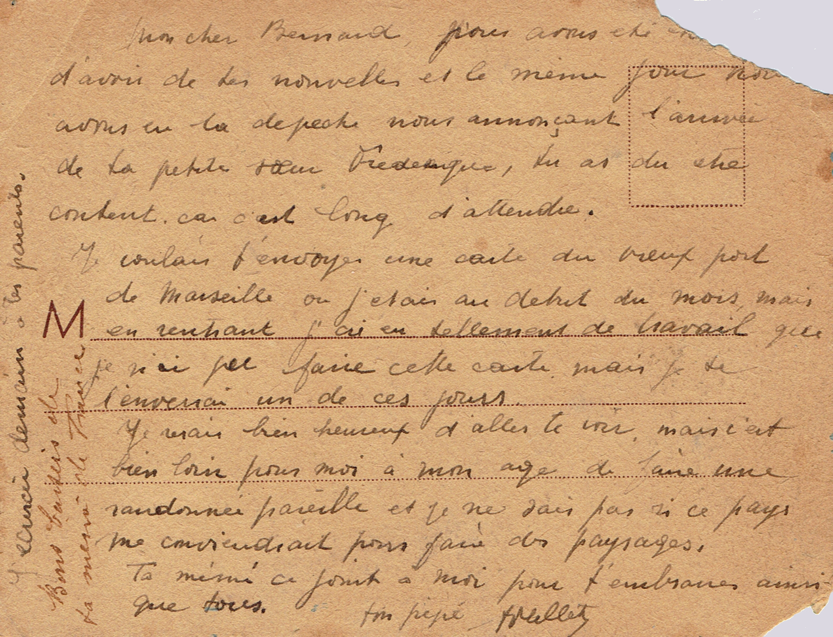 Mon cher Bernard, Nous avons été
d'avoir de tes nouvelles et le meme jour nou
avons eu la depeche nous annonçant l'arrivée
de ta petite sœur Frederique, tu as du etre
content. car c'est long d'attendre.
Je voulais t'envoyer une carte du vieux port
de Marseille ou j'etais au debut du mois, mais
M en rentrant j'ai eu tellement de travail que
je n'ai pu faire cette carte mais je te
l'enverrai un de ces jours.
Je serais bien heureux d'aller te voir, mais c'est
bien loin pour moi à mon age de faire une
randonnée pareille et je ne sais pas si ce pays
me conviendrait pour faire des paysages.
Ta mémé ce joint à moi pour t'embrasser ainsi
que tous.
ton pépé
J'ecrirai demain à tes parents.
Bons baisers de
ta mémé de